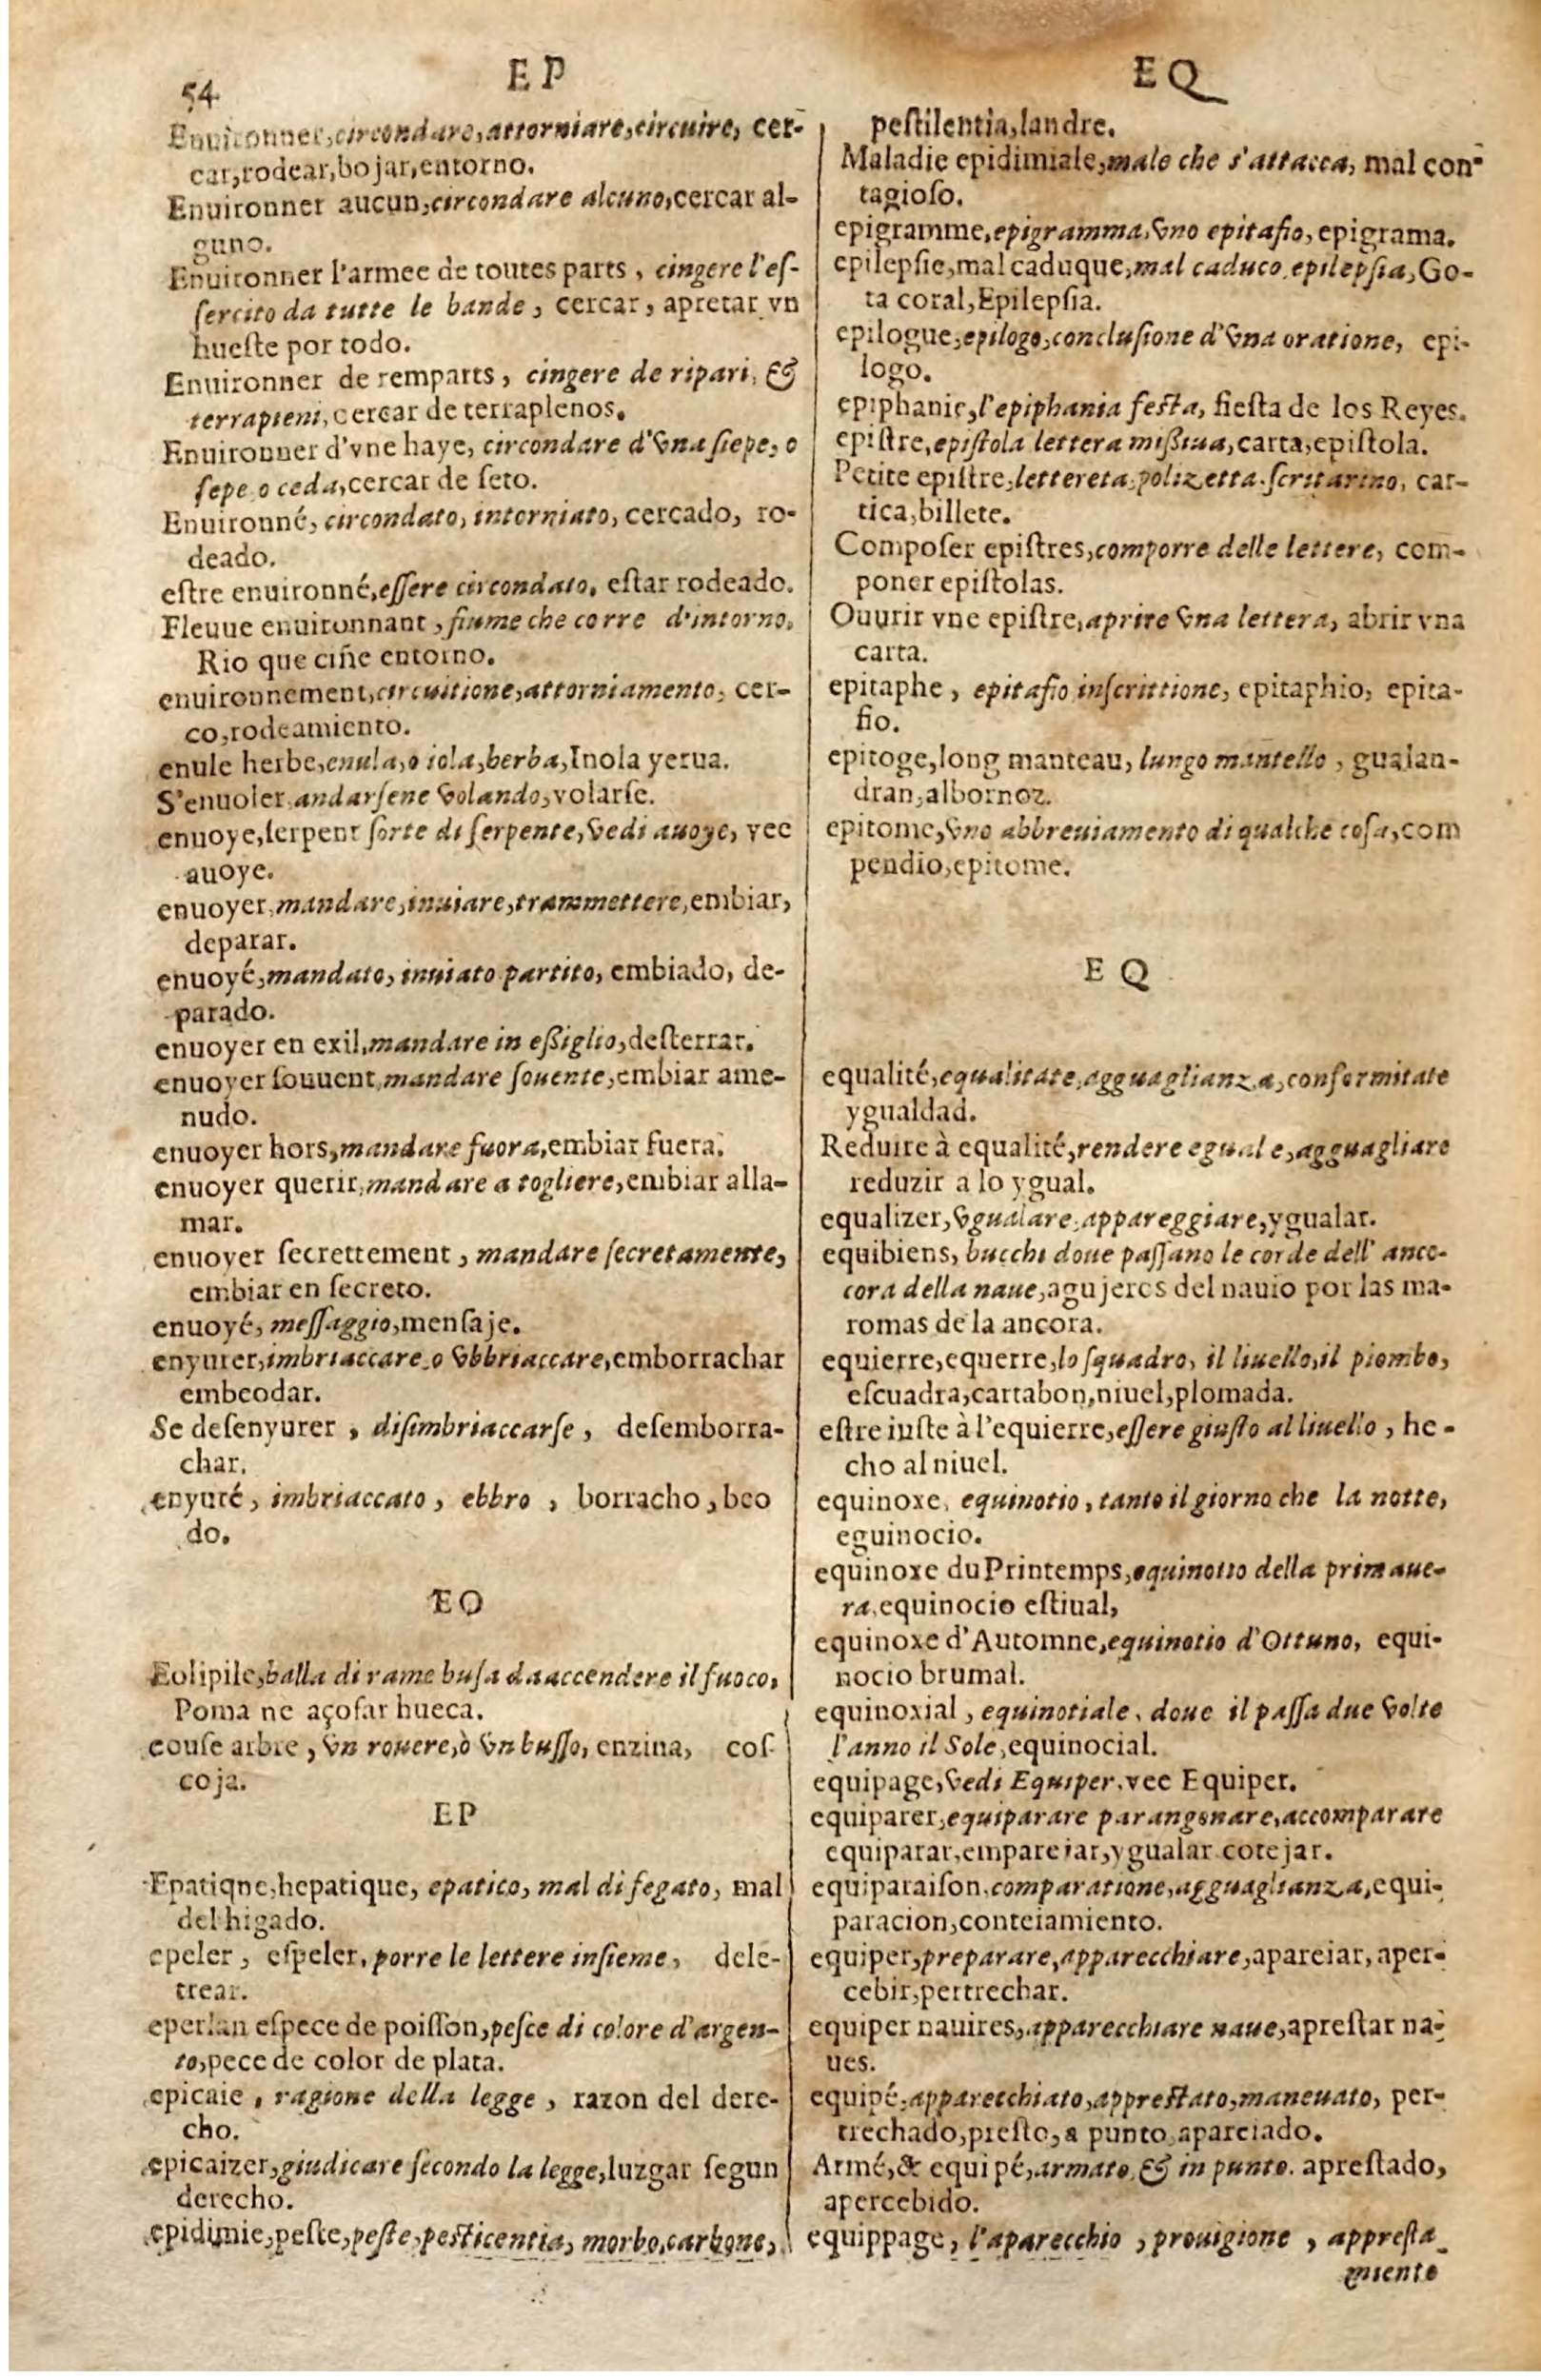 54
EP
EQ
Enuironner, circondare, attorniare, circuire, cer-
car, rodear, bojar, entorno.
Enuironner aucun, circondare alcuno, cercar al-
guno.
Enuironner l'armee de toutes parts, cingere l'es-
sercito da tutte le bande, cercar, apretar vn
hueste por todo.
Enuironner de remparts, cingere de ripari, &
terrapieni, cercar de terraplenos.
Enuironner d'vne haye, circondare d'vna siepe, o
sepe o ceda, cercar de seto.
Enuironné, circondato, intorniato, cercado, ro-
deado.
estre enuironné, essere circondato. estar rodeado.
Fleuue enuironnant, fiume che corre d'intorno,
Rio que ciñe entorno.
enuironnement, circuitione, attorniamento, cer-
co, rodeamiento.
enule herbe, enula, o iola, herba, Inola yerua.
S'enuoler, andarsene volando, volarse.
enuoye, serpent sorte di serpente, vedi auoye, vee
auoye.
enuoyer, mandare, inuiare, trammettere, embiar,
deparar.
enuoyé, mandato, inuiato partito, embiado, de-
parado.
enuoyer en exil, mandare in eßiglio, desterrar.
enuoyer souuent, mandare souente, embiar ame-
nudo.
enuoyer hors, mandare fuora, embiar fuera.
enuoyer querir, mandare a togliere, embiar alla-
mar.
enuoyer secrettement, mandare secretamente,
embiar en secreto.
enuoyé, messaggio, mensaje.
enyurer, imbriaccare o vbbriaccare, emborrachar
embeodar.
Se desenyurer, disimbriaccarse, desemborra-
char.
enyuré, imbriaccato, ebbro, borracho, beo
do.
EO
Eolipile, balla di rame busa da accendere il fuoco,
Poma ne açofar hueca.
eouse arbre, vn rouere, ò vn busso, enzina, cos-
coja.
EP
Epatique, hepatique, epatico, mal di fegato, mal
del higado.
epeler, espeler, porre le lettere insieme, dele-
trear.
eperlan espece de poisson, pesce di colore d'argen-
to, pece de color de plata.
epicaie, ragione della legge, razon del dere-
cho.
epicaizer, giudicare secondo la legge, luzgar segun
derecho.
epidimie, peste, peste, pesticentia, morbo, carbone,
pestilentia, landre.
Maladie epidimiale, male che s'attacca, mal con-
tagioso.
epigramme, epigramma, vno epitafio, epigrama.
epilepsie, mal caduque, mal caduco, epilepsia, Go-
ta coral, Epilepsia.
epilogue, epilogo, conclusione d'vna oratione, epi-
logo.
epiphanie, l'epiphania festa, fiesta de los Reyes.
epistre, epistola lettera mißiua, carta, epistola.
Petite epistre, lettereta, polizetta, scritarino, car-
tica, billete.
Composer epistres, comporre delle lettere, com-
poner epistolas.
Ouurir vne epistre, aprire vna lettera, abrir vna
carta.
epitaphe, epitafio inscrittione, epitaphio, epita-
fio.
epitoge, long manteau, lungo mantello, gualan-
dran, albornoz.
epitome, vno abbreuiamento di qualche cosa, com
pendio, epitome.
EQ
equalité, equalitate, agguaglianza, conformitate
ygualdad.
Reduire à equalité, rendere eguale, agguagliare
reduzir a lo ygual.
equalizer, vgualare, appareggiare, ygualar.
equibiens, bucchi doue passano le corde dell' ance-
cora della naue, agujeros del nauio por las ma-
romas de la ancora.
equierre, equerre, lo squadro, il liuello, il piombo,
escuadra, cartabon, niuel, plomada.
estre iuste à l'equierre, essere giusto al liuello, he-
cho al niuel.
equinoxe, equinotio, tanto il giorno che la notte,
eguinocio.
equinoxe du Printemps, equinotio della primaue-
ra, equinocio estiual,
equinoxe d'Automne, equinotio d'Ottuno, equi-
nocio brumal.
equinoxial, equinotiale, doue il passa due volte
l'anno il Sole, equinocial.
equipage, vedi Equiper. vee Equiper.
equiparer, equiparare parangonare, accomparare
equiparar, empareiar, ygualar cotejar.
equiparaison, comparatione, agguaglianza, equi-
paracion, conteiamiento.
equiper, preparare, apparecchiare, apareiar, aper-
cebir, pertrechar.
equiper nauires, apparecchiare naue, aprestar na-
ues.
equipé, apparecchiato, apprestato, maneuato, per-
trechado, presto, a punto apareiado.
Armé, & equipé, armato, & in punto. aprestado,
apercebido.
equippage, l'aparecchio, prouigione, appresta-
miento